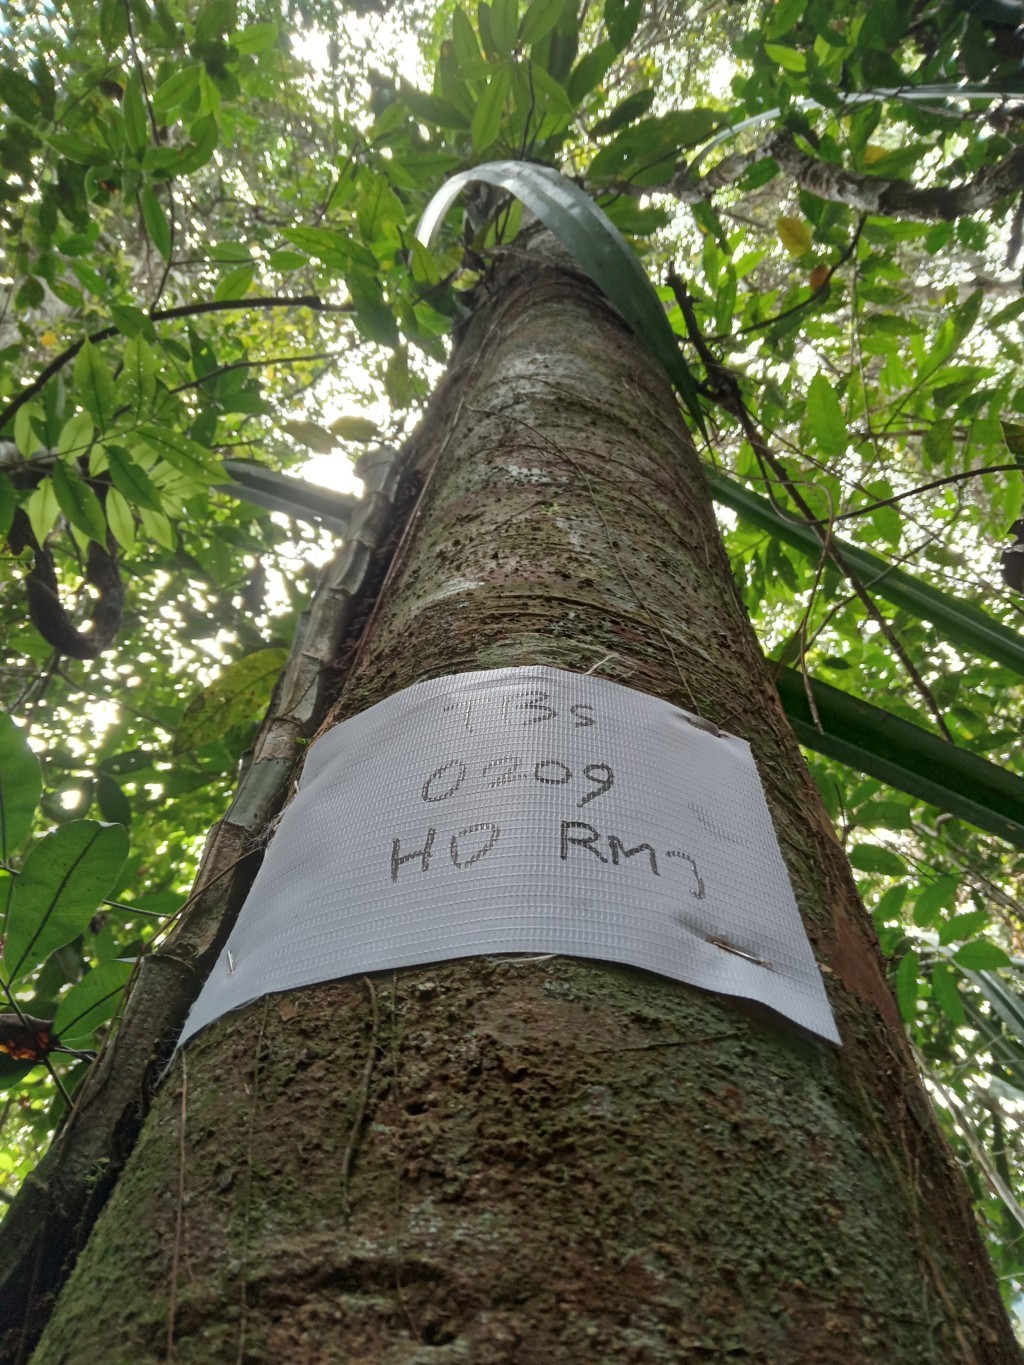 TBs
0209
HD RMJ